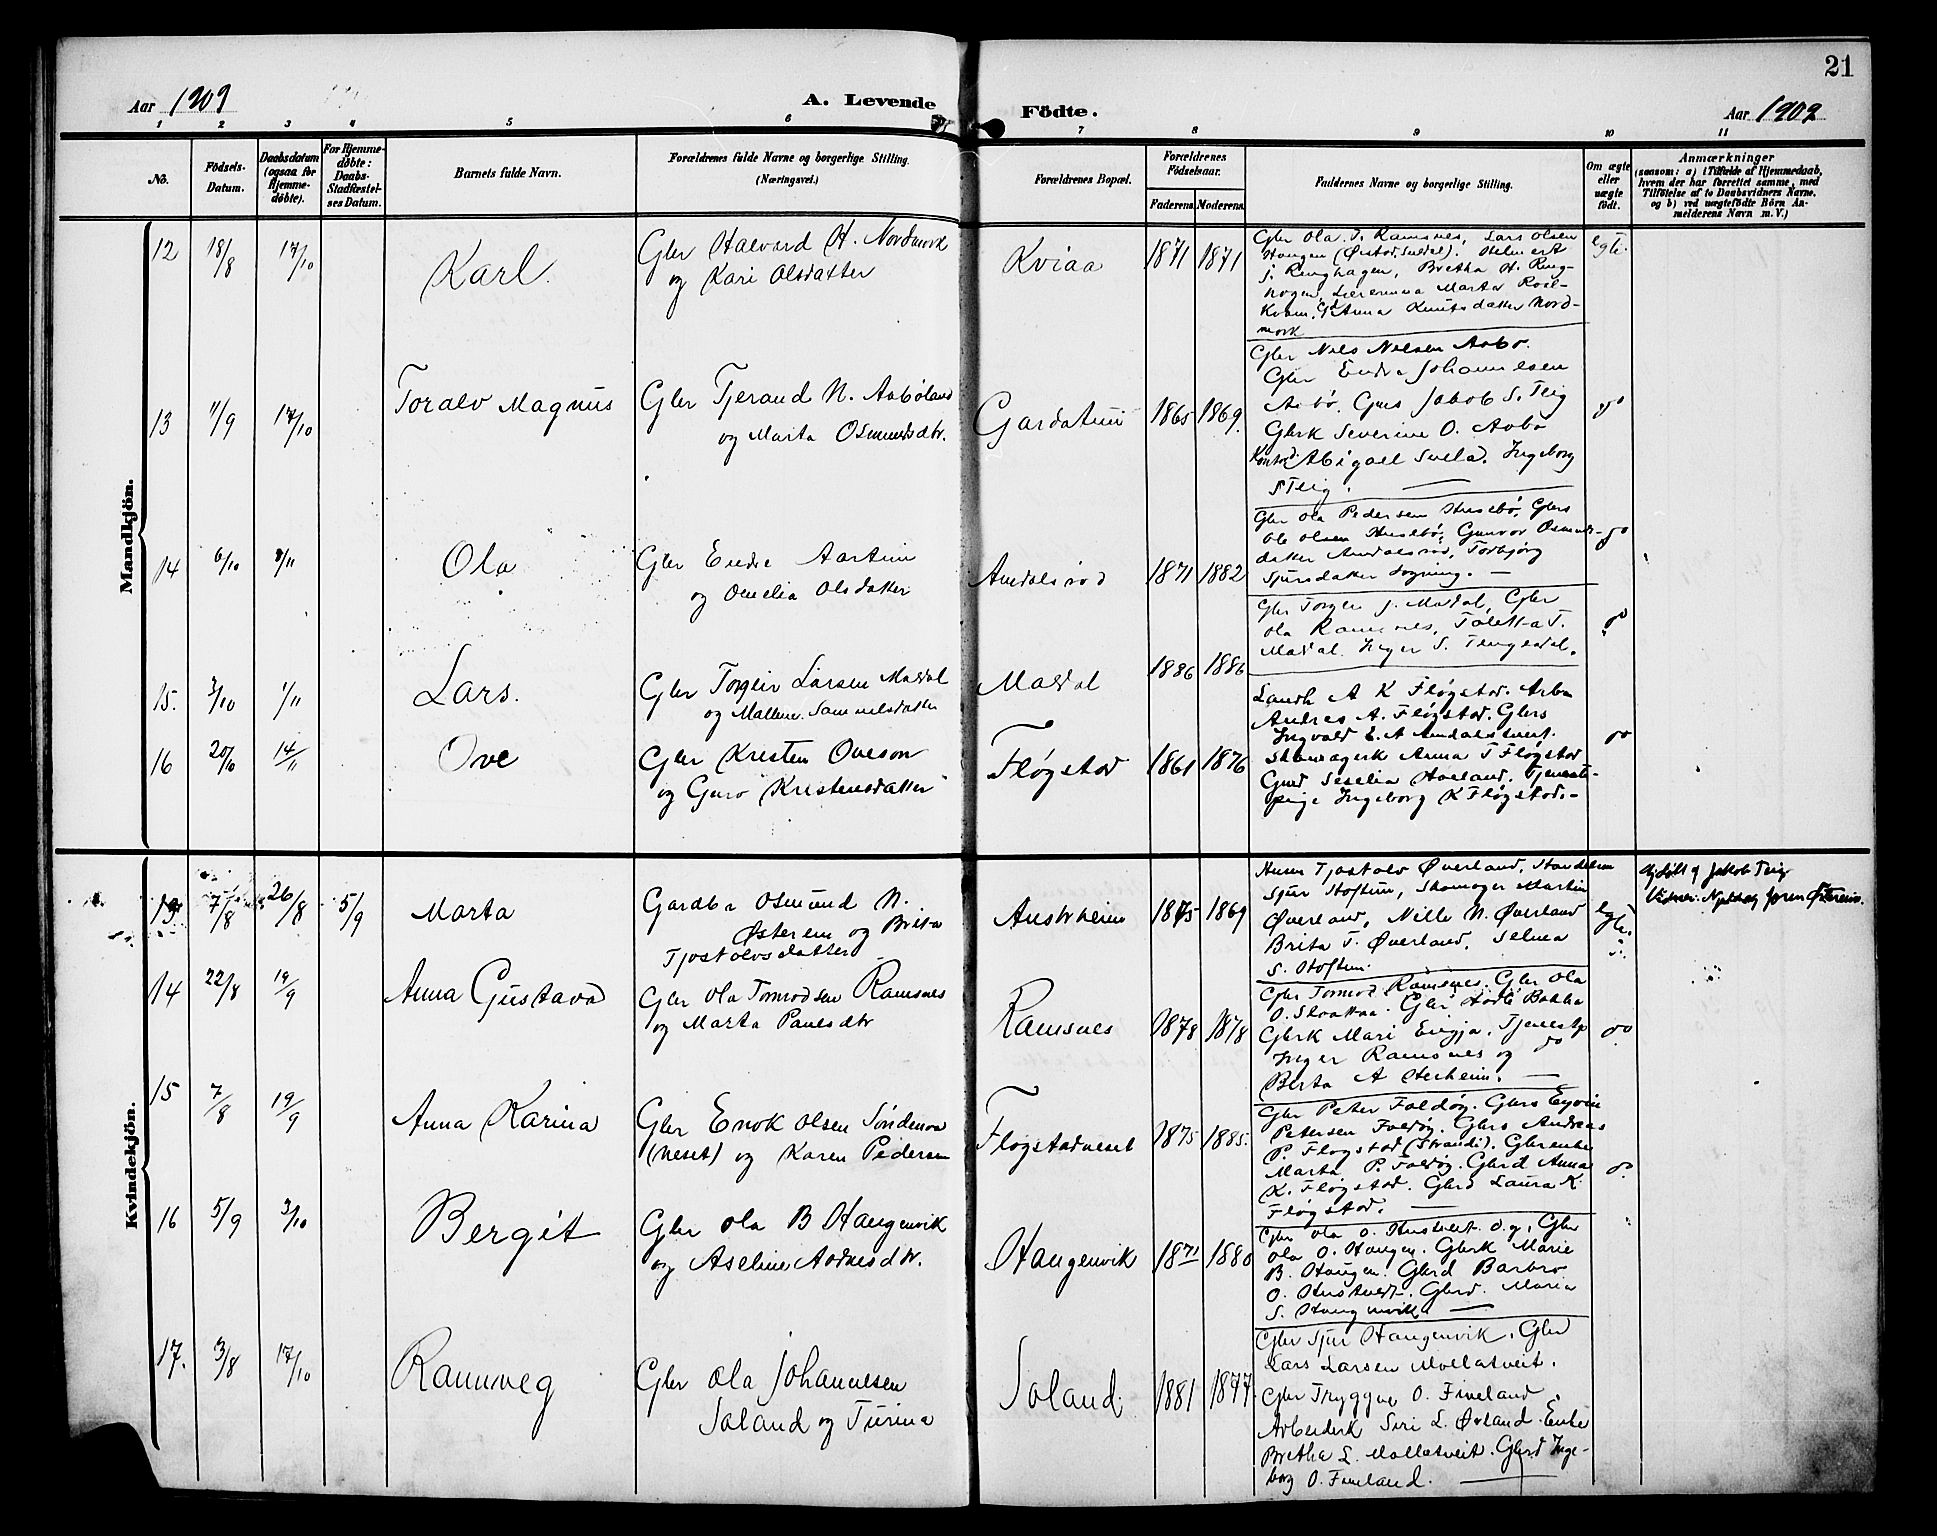 21
Aar 1909 A. Levende Födte. Aar 1909
1 2 3 4 5 6 7 8 9 10 11
No.
Födsels-
Datum.
Daabsdatum
(ogsaa for
Hjemme-
döbte).
For Hjemme-
döbte:
Daabs-
Stadfæstel-
ses Datum.
Barnets fulde Navn.
Forældrenes fulde Navne og borgerlige Stilling.
(Næringsvei.)
Forældrenes Bopæl.
Forældrenes
Födselsaar.
Faderens. Moderens.
Faddernes Navne og borgerlige Stilling.
Om ægte
eller
uægte
födt.
Anmærkninger
(saasom: a) i Tilfælde af Hjemmedaab,
hvem der har forrettet samme, med
Tilföielse af to Daabsvidners Navne,
og b) ved uægtefödte Börn An-
melderens Navn m. V.)
Mandkjön.
12 18/8 17/10 Karl.
Gbr Halvard H. Nordmork
og Kari Olsdatter
Kviaa 1871 1871
Gbr Ola T. Ramsnes, Lars Olsen
Haugen (Østod, Suldal). Helmert
J. Ringhagen, Bretha H. Ring-
hagen, Lærerinna Marta Roal-
kvam, Anna Knutsdatter Nord-
mork
egte.
13 11/9 17/10 Toralv Magnus
Gbr Tjerand N. Aabøland
og Marta Osmundsdtr.
Gardatun 1865 1869.
Gbr Nels Nelsen Aabø.
Gbr Endre Johannesen
Aabø, Gbrs Jakob S. Teig
Gbrk Severine O. Aabø
Abigael Svela. Ingeborg
S Teig.
do
14 6/10 Ola
Gbr Endre Aartun
og Omelia Olsdatter
Amdalsrød 1871 1882
Gbr Ola Pedersen Husebø, Gbrs
Ole Olsen Husebø, Gunvor Osmunds-
datter Amdalsrød, Torbjørg
Sjursdatter Løgning.
do
15. 3/10 1/11 Lars.
Gbr Torgeir Larsen Maldal
og Malene Samuelsdatter
Maldal 1886 1886
Gbr Torger J. Maldal, Gbr
Ola Ramsnes, Toletta T.
Maldal. Inger S. Tengesdal.
do
16 20/10 14/11 Ove
Gbr Kristen Oveson
og Guro Kristensdatter
Fløgstad 1861 1876
Landh A K Fløgstad. Arb
Andres A. Fløgstad. Gbrs
Ingvald E. A Amdalstveit.
Skomagerk Anna T Fløgstad
Gbrd Seselia Hoeland. Tjeneste-
pige Ingeborg K Fløgstad.
do
Kvindekjön.
13 7/8 26/8 5/9 Marta
Gardbr Osmund N.
Østerem og Brita
Tjostolvsdatter
Austrheim 1875 1869
Husm Tjostolv Øverland, Handelsm
Sjur Hoftun, Skomager Martin
Øverland, Nille N. Øverland
Brita T. Øverland, Selma
S. Hoftun.
egte.
Hj døbt af Jakob Teig
14 22/8 19/9 Anna Gustava
Gbr Ola Tormodsen Ramsnes
og Marta Paulsdtr
Ramsnes 1878 1878
Gbr Tormod Ramsnes. Gbr Ola
O. Straapa. Gbr Hodle Bakka
Gbrk Mari Eingja. Tjenestp
Inger Ramsnes og do
Berta A Østerheim.
do
15 7/8 19/9 Anna Karina
Gbr Enok Olsen Søndenaa
(Neset) og Karen Pedersen
Fløgstadneset 1875 1885.
Gbr Peter Foldøy. Gbrs Eyvin
Petersen Foldøy. Gbrs Andreas
P. Fløgstad (Strandi). Gbrenke
Marta P. Foldøy. Gbrd Anna
K. Fløgstad. Gbrd Laura K
Fløgstad.
do.
16 5/9 3/10 Bergit
Gbr Ola B Haugenvik
og Aseline Aadnesdtr.
Haugenvik 1871 1880
Gbr Ola O. Hustveit. Gbr
Ola O. Haugen. Gbrk Marie
B. Haugen. Gbrd Barbro
O. Hustveit. Gbrd. Maria
S. Haugenvik
17. 3/8 17/10 Rannveg
Gbr Ola Johannesen
Joland og Turina
Joland 1881 1877
Gbr Sjur Haugenvik, Gbr
Lars Larsen Mollatveit.
Gbr Tryggve O. Fineland.
Arbeiderk Siri L. Ørland. Enke
Bretha L. Mollatveit. Gbrd Inge-
borg O. Fineland.